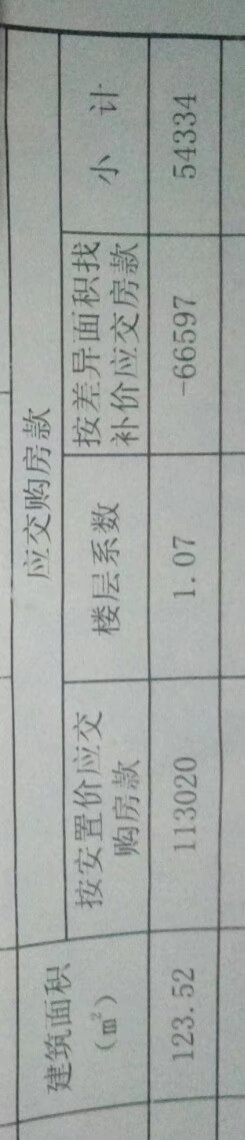 建筑面积
（m²）
应交购房款
按安置价应交
购房款
楼层系数
按差异面积找
补价应交房款
小 计
123.52
113020
1.07
-66597
54334